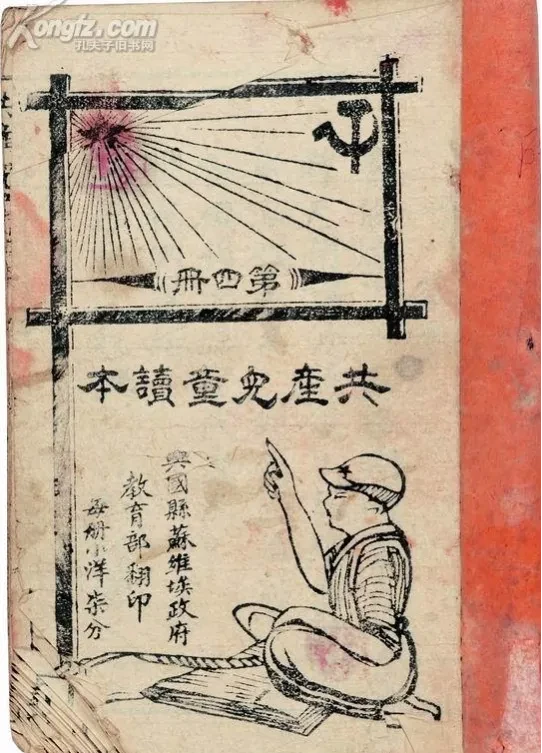 Kongfz.com
孔夫子旧书网
第四册
共產兒童讀本
興國縣蘇維埃政府
教育部翻印
每册小洋柒分